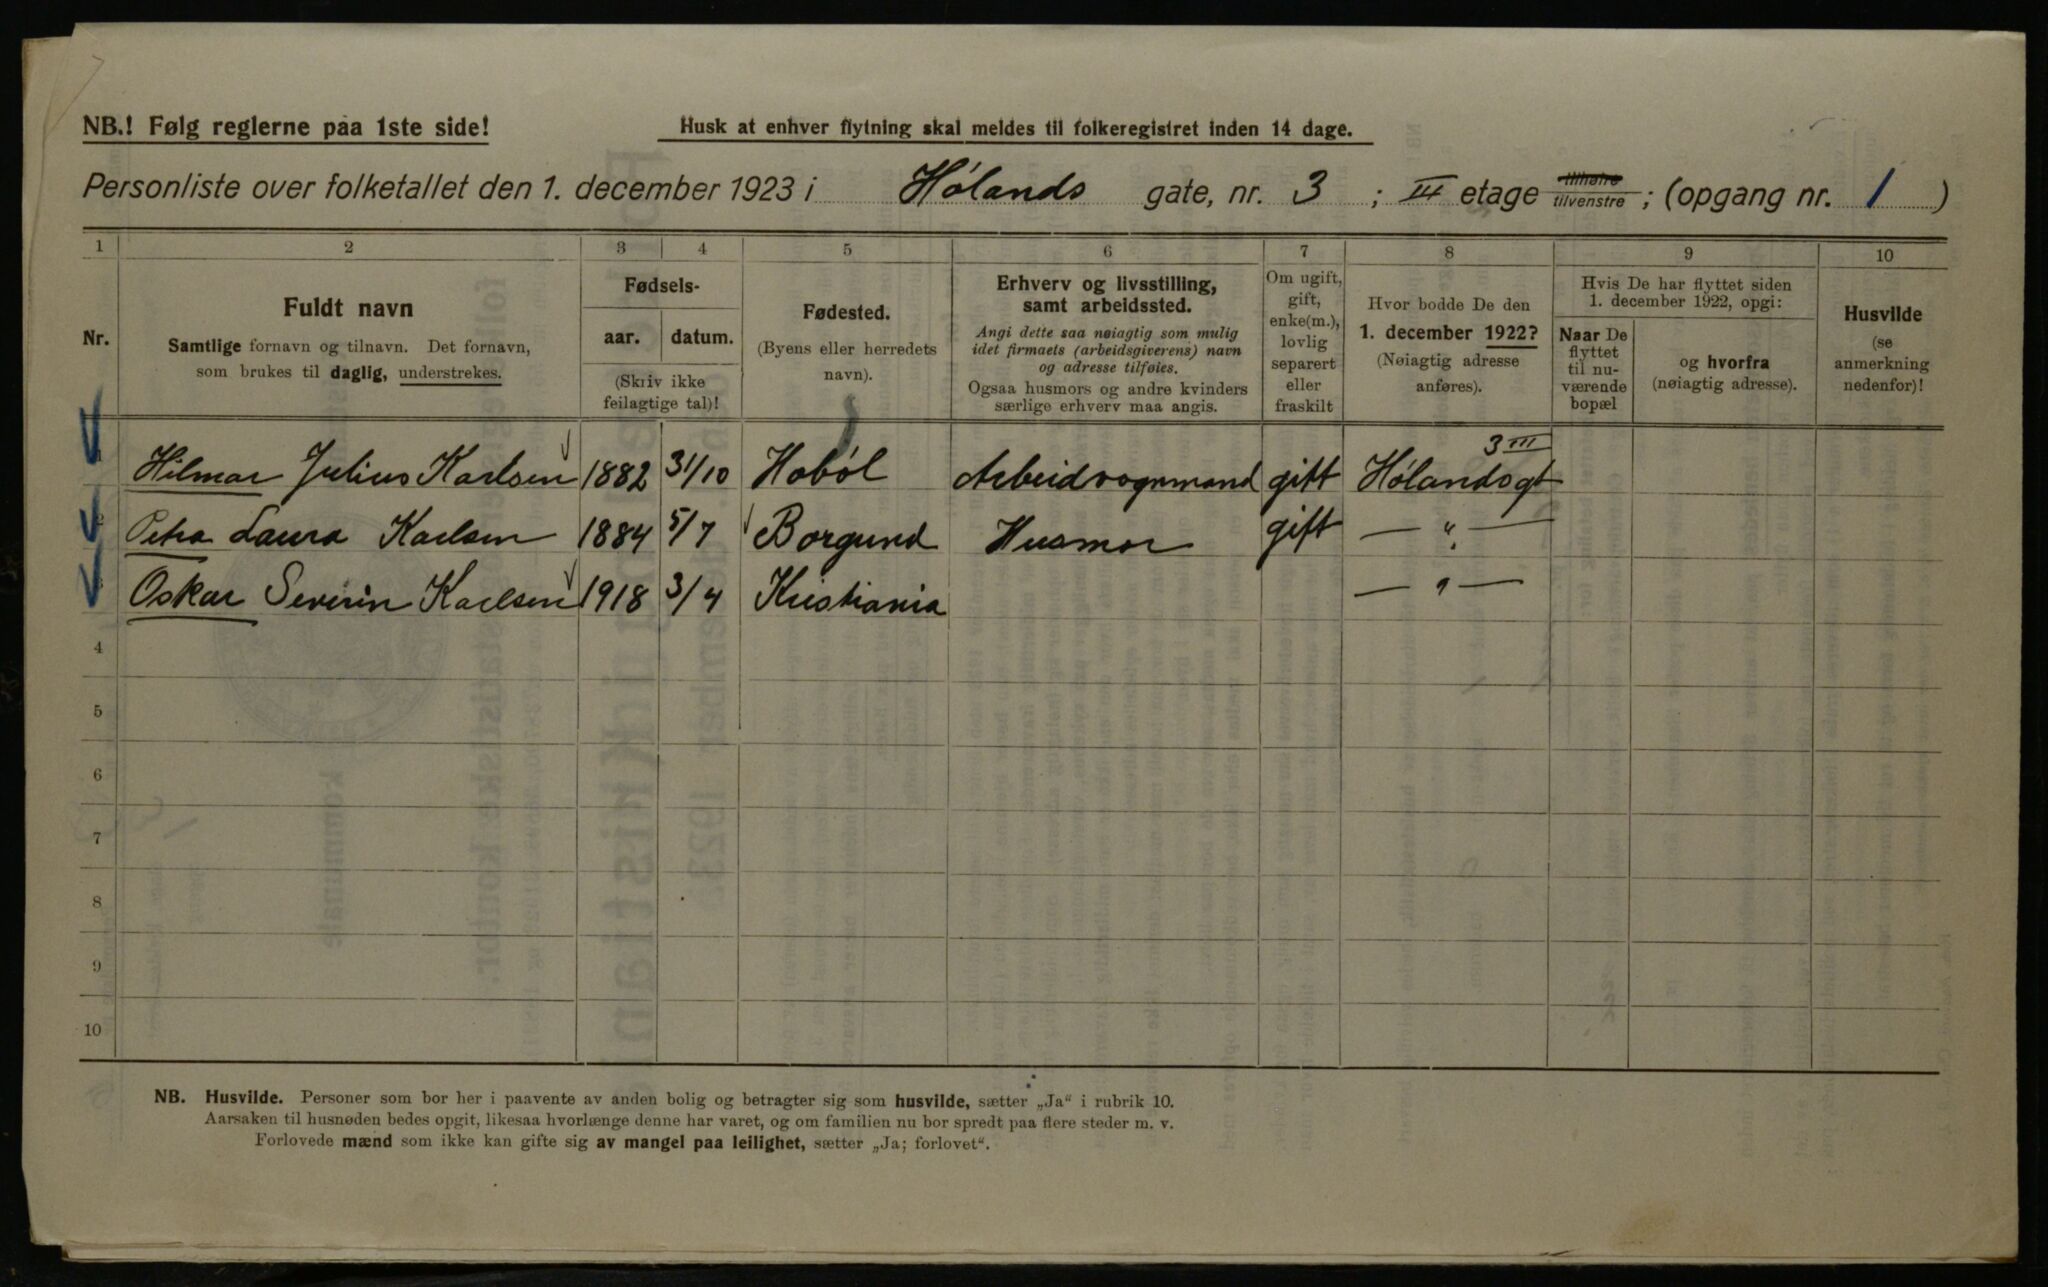 NB.! Følg reglerne paa 1ste side!
Husk at enhver flytning skal meldes til folkeregistret inden 14 dage.
Personliste over folketallet den 1. december 1923 i Hølands gate, nr. 3 ; III etage tilhøire tilvenstre ; (opgang nr. 1 )
1 2 3 4 5 6 7 8 9 10
Nr.
Fuldt navn
Samtlige fornavn og tilnavn. Det fornavn,
som brukes til daglig, understrekes.
Fødsels-
aar. datum.
(Skriv ikke
feilagtige tal)!
Fødested.
(Byens eller herredets
navn).
Erhverv og livsstilling,
samt arbeidssted.
Angi dette saa nøiagtig som mulig
idet firmaets (arbeidsgiverens) navn
og adresse tilføies.
Ogsaa husmors og andre kvinders
særlige erhverv maa angis.
Om ugift,
gift,
enke(m.),
lovlig
separert
eller
fraskilt
Hvor bodde De den
1. december 1922?
(Nøiagtig adresse
anføres).
Hvis De har flyttet siden
1. december 1922, opgi:
Naar De
flyttet
til nu-
værende
bopæl
og hvorfra
(nøiagtig adresse).
Husvilde
(se
anmerkning
nedenfor)!
Hilmar Julius Karlsen 1882 31/10 Hobøl Arbeidvognmand gift Hølandsgt 3 III
Petra Laura Karlsen 1884 5/7 Borgund Husmor gift — " —
Oskar Severin Karlsen 1918 3/4 Kristiania — " —
4
5
6
7
8
9
10
NB. Husvilde. Personer som bor her i paavente av anden bolig og betragter sig som husvilde, sætter „Ja“ i rubrik 10.
Aarsaken til husnøden bedes opgit, likesaa hvorlænge denne har varet, og om familien nu bor spredt paa flere steder m. v.
Forlovede mænd som ikke kan gifte sig av mangel paa leilighet, sætter „Ja; forlovet“.